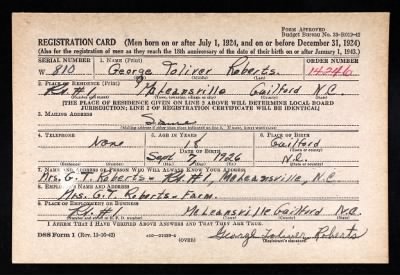 FORM APPROVED
Budget Bureau No. 33-R012-42
REGISTRATION CARD (Men born on or after July 1, 1924, and on or before December 31, 1924)
(Also for the registration of men as they reach the 18th anniversary of the date of their birth on or after January 1, 1943.)
SERIAL NUMBER 1. NAME (Print) ORDER NUMBER
W 810 George Toliver Roberts. 14246
(First) (Middle) (Last)
2. PLACE OF RESIDENCE (Print)
Rt. #1 McLeansville Guilford N.C.
(State)
[THE PLACE OF RESIDENCE GIVEN ON LINE 2 ABOVE WILL DETERMINE LOCAL BOARD
JURISDICTION; LINE 2 OF REGISTRATION CERTIFICATE WILL BE IDENTICAL]
3. MAILING ADDRESS
Same
4. TELEPHONE 5. AGE IN YEARS 6. PLACE OF BIRTH
None 18 Guilford
DATE OF BIRTH
Sept 7, 1926 N.C.
(Exchange) (Number) (Mo.) (Day) (Yr.) (State or country)
7. NAME AND ADDRESS OF PERSON WHO WILL ALWAYS KNOW YOUR ADDRESS
Mrs. G. T. Roberts - Rt. #1, McLeansville, N.C.
8. EMPLOYER'S NAME AND ADDRESS
Mrs. G. T. Roberts - Farm.
9. PLACE OF EMPLOYMENT OR BUSINESS
Rt. #1 McLeansville Guilford N.C.
I AFFIRM THAT I HAVE VERIFIED ABOVE ANSWERS AND THAT THEY ARE TRUE.
DSS Form 1 (Rev. 11-16-42) (OVER) George Toliver Roberts
(Registrant's signature)